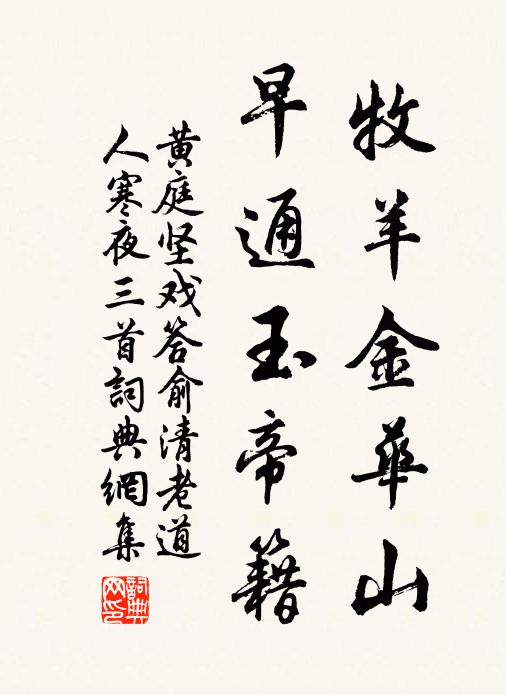 牧羊金華山
早通玉帝籍
黄庭坚戏答俞清老道
人寒夜三首詞典網集
詞典
网印